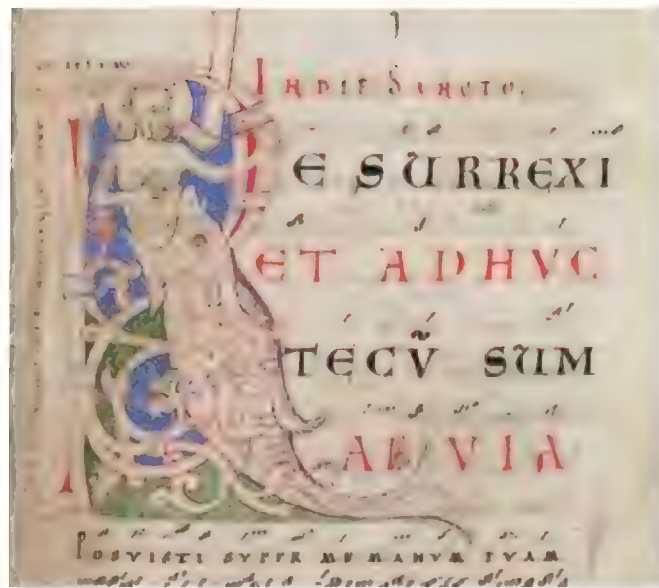 IN DIE SANCTO.
RESURREXI
ET ADHVC
TECV̄ SUM
AEVIA
POSVISTI SVPER ME MANVM TVAM